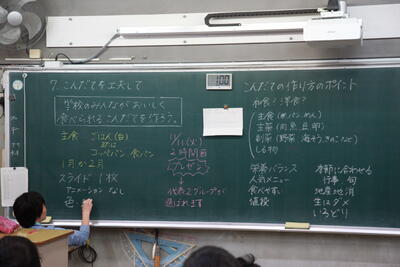 7. こんだてを工夫して
学校のみんながおいしく
食べられるこんだてを作ろう。
主食 ごはん(白)
コッペパン 食パン
1月か2月
スライド 1枚
アニメーション なし
色・
11/11(火)
2時間目
プレゼン
代表2グループが
選ばれます
100
こんだての作り方のポイント
和食?洋食?
主食(米パンめん)
主菜(肉魚豆卵)
副菜(野菜 海そう、きのこなど)
しる物
栄養バランス
人気メニュー
食べやすい
値段
季節に合わせる
行事 旬
地産地消
生はダメ
いろどり